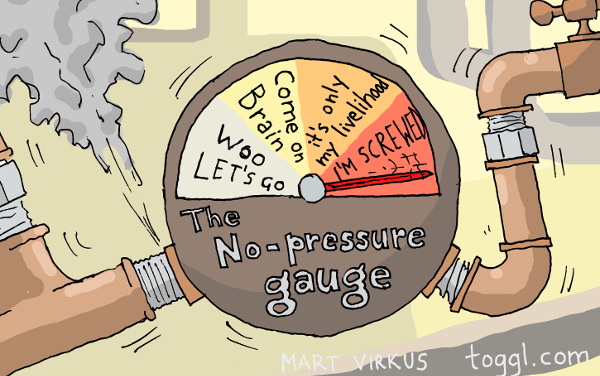 Woo
LET'S GO
Come on
Brain
it's only
my livelihood
I'M SCREWED
The
No-pressure
gauge
MART VIRKUS toggl.com